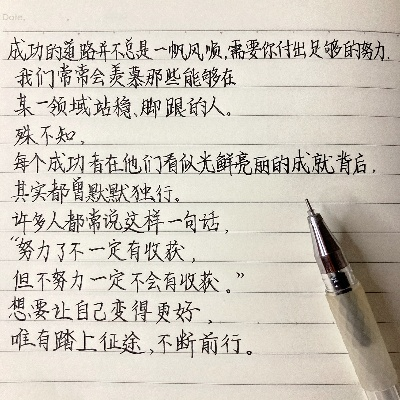 Date.
成功的道路并不总是一帆风顺,需要你付出足够的努力.
我们常常会羡慕那些能够在
某一领域站稳、脚跟的人。
殊不知,
每个成功者在他们看似光鲜亮丽的成就背后,
其实都曾默默独行。
许多人都常说这样一句话,
“努力了不一定有收获,
但不努力一定不会有收获。”
想要让自己变得更好,
唯有踏上征途,不断前行。